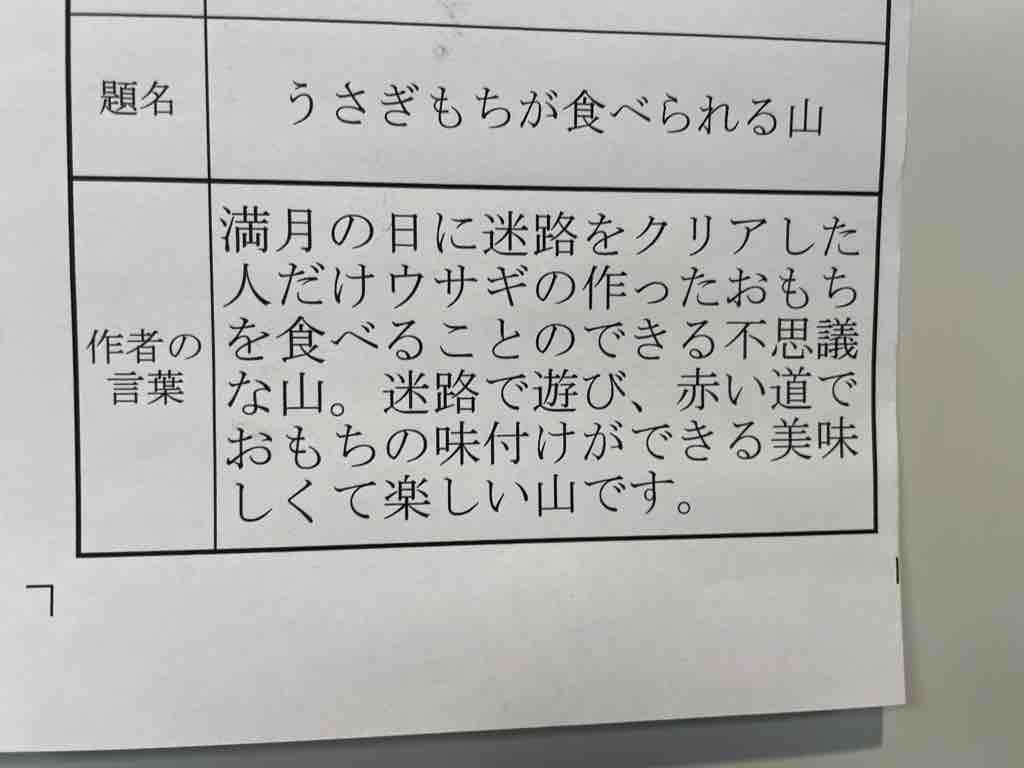 題名
うさぎもちが食べられる山
作者の
言葉
満月の日に迷路をクリアした
人だけウサギの作ったおもち
を食べることのできる不思議
な山。迷路で遊び、赤い道で
おもちの味付けができる美味
しくて楽しい山です。